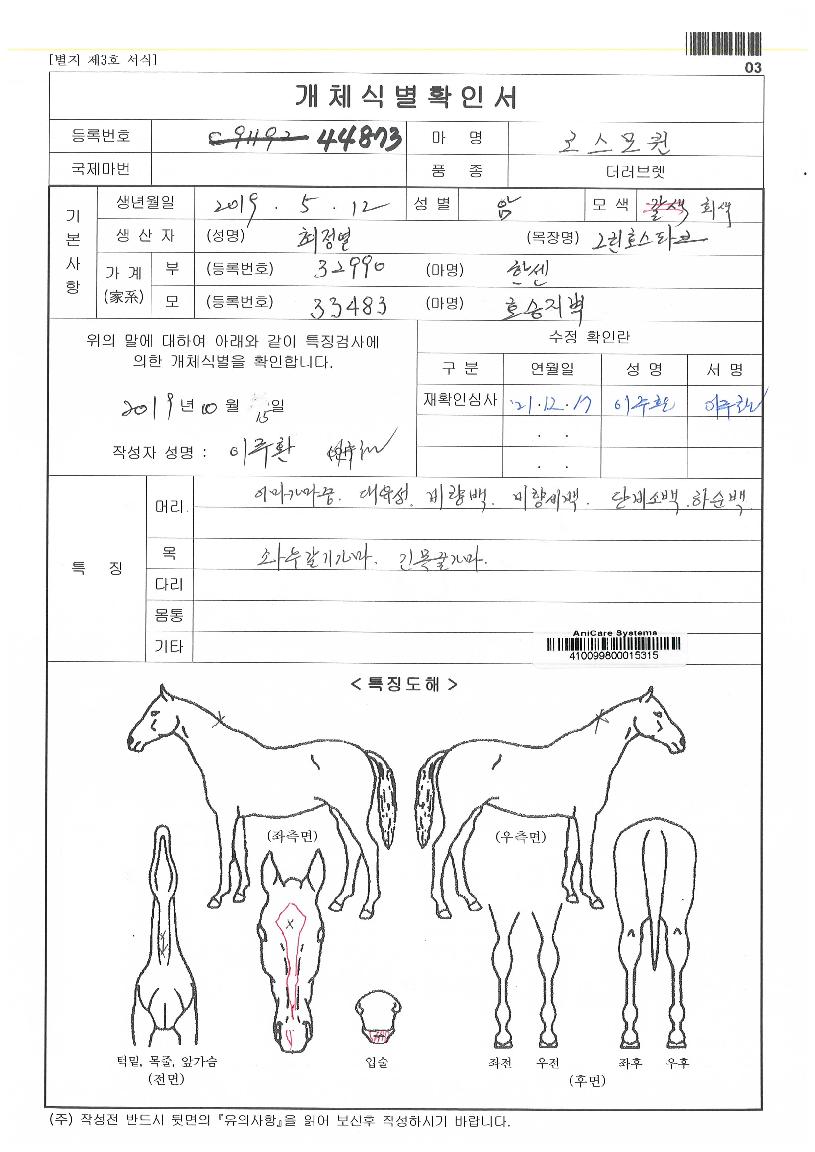 [별지 제3호 서식]
03
개체식별확인서
등록번호 44873 마 명 로스모퀸
국제마번 품 종 더러브렛
기본사항
생년월일 2019 . 5 . 12 성 별 암 모 색 갈색 회색
생 산 자 (성명) 최정열 (목장명) 그린호스타브
가 계 (家系) 부 (등록번호) 32990 (마명) 한센
모 (등록번호) 33483 (마명) 호승지벽
위의 말에 대하여 아래와 같이 특징검사에
의한 개체식별을 확인합니다.
2019년 10월 15일
작성자 성명 : 이주환
수정 확인란
구 분 연월일 성 명 서 명
재확인심사 '21.12.17 이주환 이주환
. .
. .
특 징
머리 이마가마중. 대유성. 비량백. 비량세백. 단비소백. 하순백.
목 좌우갈기가마. 긴목줄가마.
다리
몸통
기타
AniCare Systems
410099800015315
<특징도해>
(좌측면) (우측면)
턱밑, 목줄, 앞가슴 입술 좌전 우전 좌후 우후
(전면) (후면)
(주) 작성전 반드시 뒷면의 『유의사항』을 읽어 보신후 작성하시기 바랍니다.